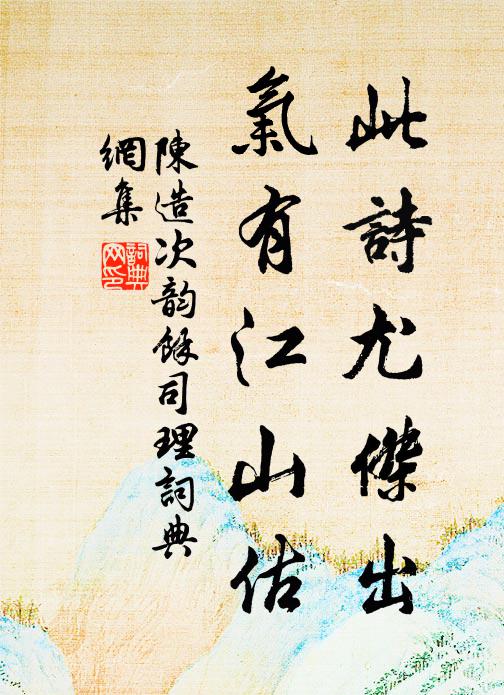 此詩尤傑出
氣有江山估
陳造次韵餘司理詞典
網集
詞典網印